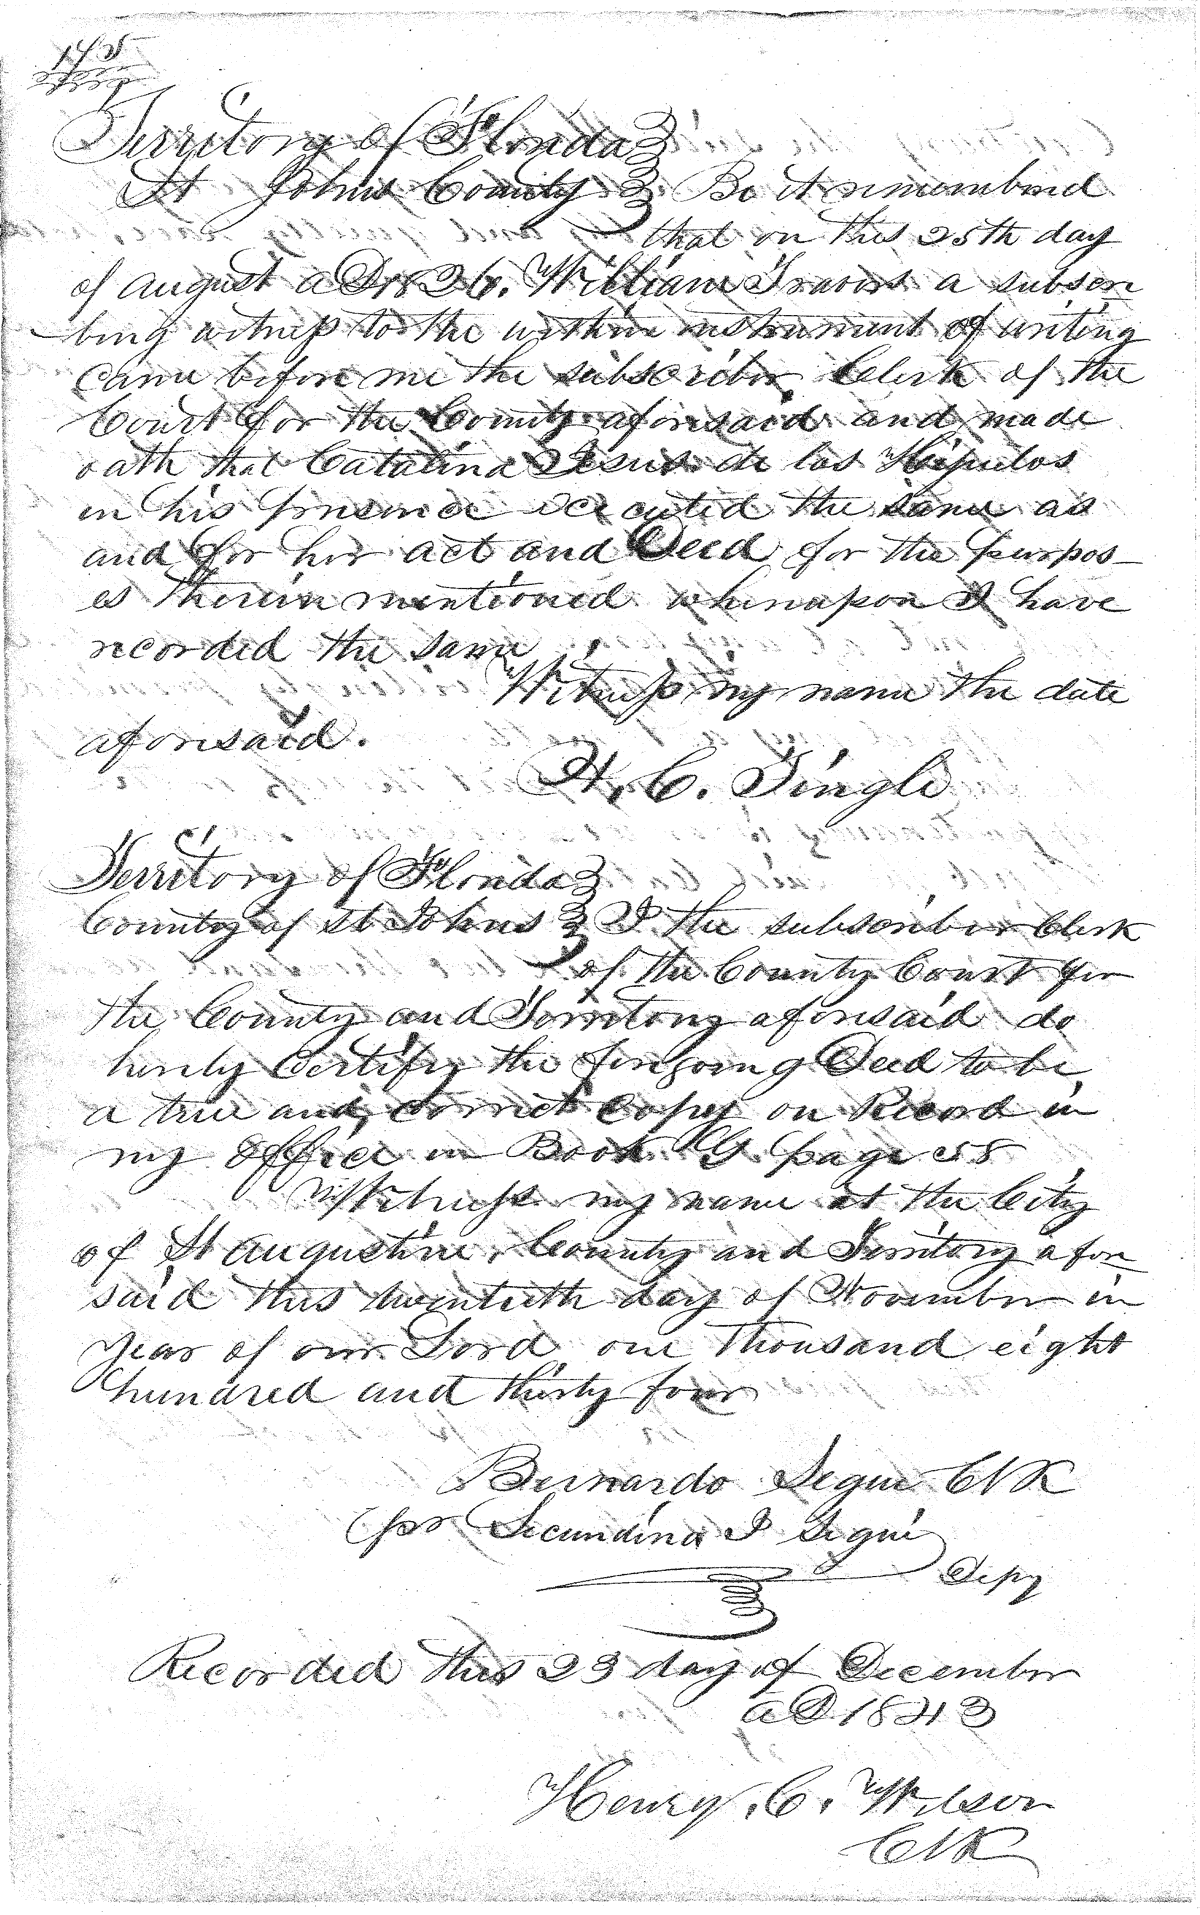 145
Territory of Florida
St Johns County Be it remembered
that on this 25th day
of August A D 1826. William Travers a subscri
bing witness to the within instrument of writing
came before me the subscriber Clerk of the
Court for the County aforesaid and made
oath that Catalina Jesus de los Hijuelos
in his presence executed the same as
and for her act and Deed for the purpos_
es therein mentioned whereupon I have
recorded the same
Witness my name the date
aforesaid.
H. C. Tingle
Territory of Florida
County of St Johns I the subscriber Clerk
of the County Court for
the County and Territory aforesaid do
hereby Certify the foregoing Deed to be
a true and correct Copy on Record in
my Office in Book G. page 58
Witness my name at the City
of St Augustine, County and Territory afore
said this twentieth day of November in
year of our Lord one thousand eight
hundred and thirty four
Bernardo Segui Clk
per Secundina I Segui
Depy
Recorded this 23 day of December
A D 1843
Henry. C. Wilson
Clk